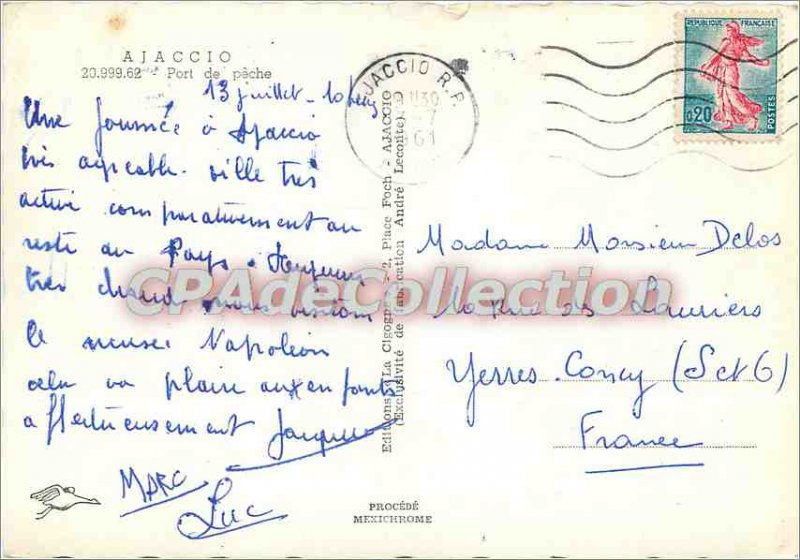 AJACCIO
20.999.62 Port de pêche
13 juillet - 10 h
Une journée à Ajaccio
très agréable. ville très
active comparativement au
reste du Pays. Toujours
très chaud. nous visitons
le musée Napoléon
cela va plaire aux enfants
affectueusement Jacques
MARC
Luc
Editions "La Cigogne" - 2, Place Foch - AJACCIO
(Exclusivité de fabrication André Leconte)
PROCÉDÉ
MEXICHROME
AJACCIO R.P.
1961
REPUBLIQUE FRANÇAISE
0,20
POSTES
Madame Monsieur Delos
10 Rue des Lauriers
Yerres. Concy (S et O)
France
CPAdeCollection